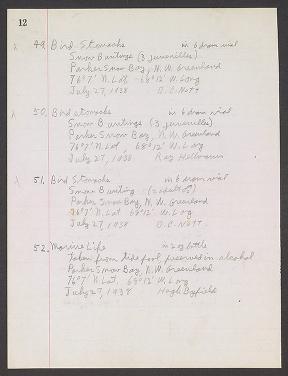 12
49. Bird Stomachs in 6 dram vial
Snow Buntings (3 juveniles)
Parker Snow Bay, N.W. Greenland
76°7' N. Lat, - 68°12' W. Long
July 27, 1938 D.C. Nutt
50. Bird stomachs in 6 dram vial
Snow Buntings (3 juveniles)
Parker Snow Bay, N.W. Greenland
76°7' N. Lat, 68°12' W. Long
July 27, 1938 Reg
51. Bird Stomachs in 6 dram vial
Snow Bunting (2 adult
Parker Snow Bay, N.W. Greenland
76°7' N. Lat 68°12' W. Long
July 27, 1938 D.C. Nutt
52. Marine Life in 2 oz bottle
Taken from tide pool, preserved in alcohol
Parker Snow Bay, N.W. Greenland
76°7' N. Lat. 68°12' W. Long
July 27, 1938 Hugh Byfield